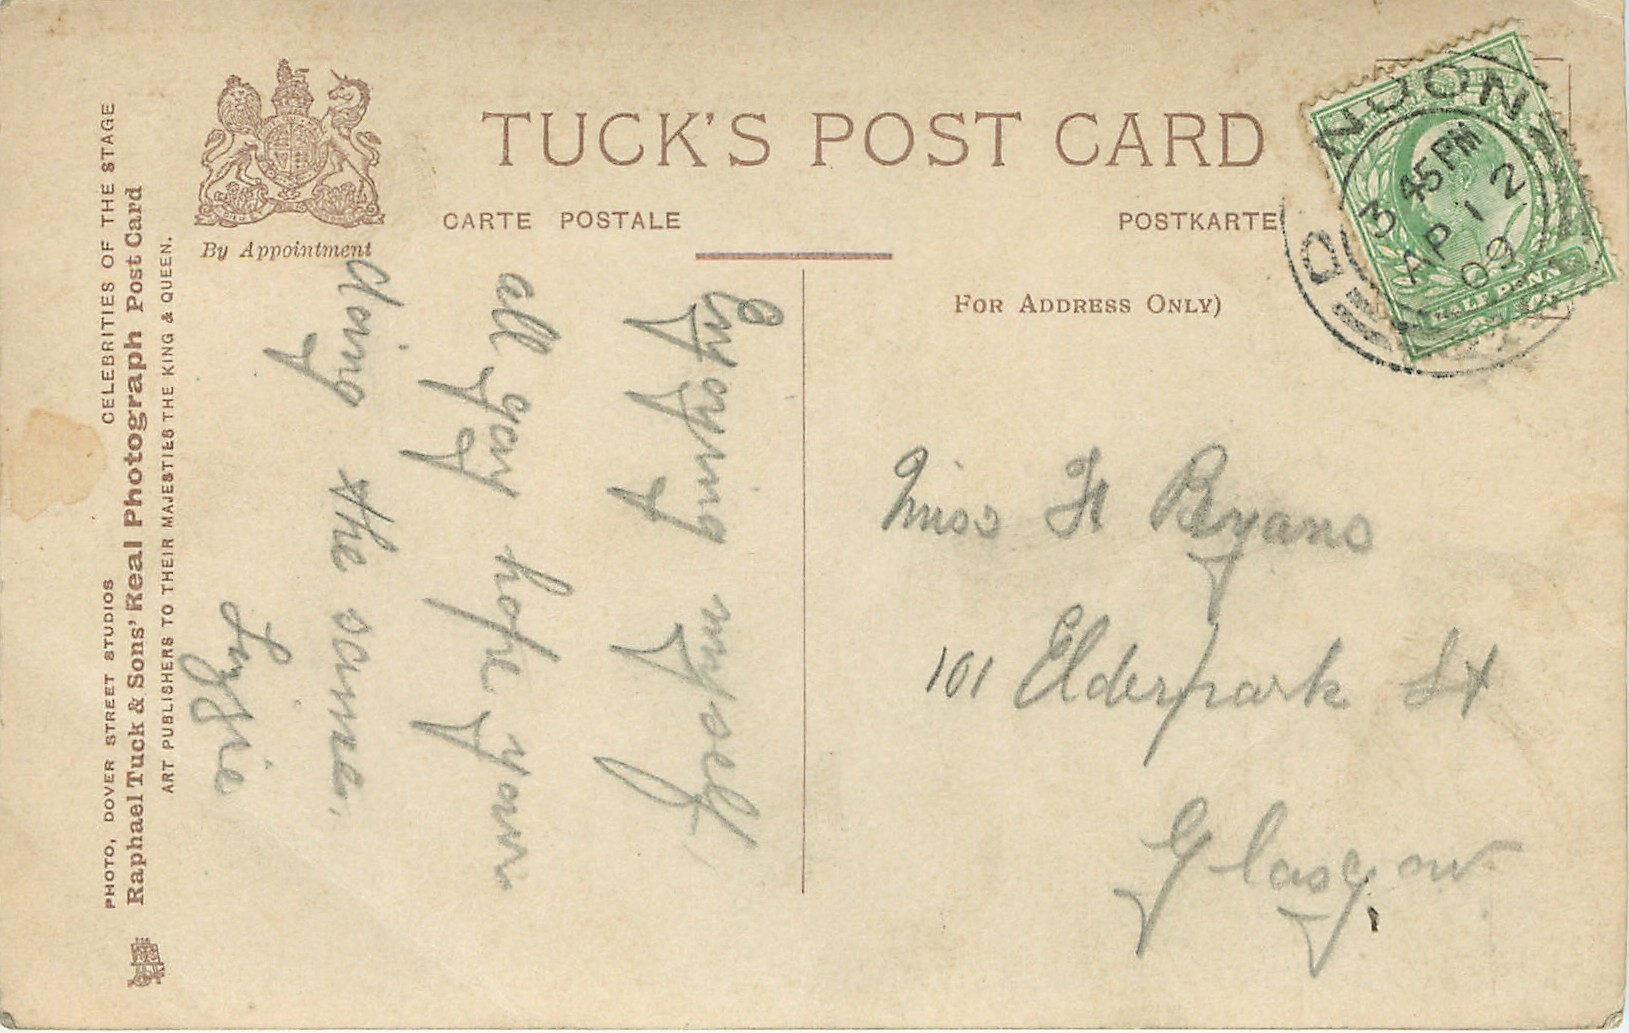 TUCK'S POST CARD
CARTE POSTALE
POSTKARTE
By Appointment
FOR ADDRESS ONLY)
PHOTO, DOVER STREET STUDIOS CELEBRITIES OF THE STAGE
Raphael Tuck & Sons' Real Photograph Post Card
ART PUBLISHERS TO THEIR MAJESTIES THE KING & QUEEN.
Enyoying myself,
all gay hope your
doing the same.
Lizzie
Miss H Byans
101 Elderpark St
Glasgow
DUNOON
3 45PM
AP 12
09